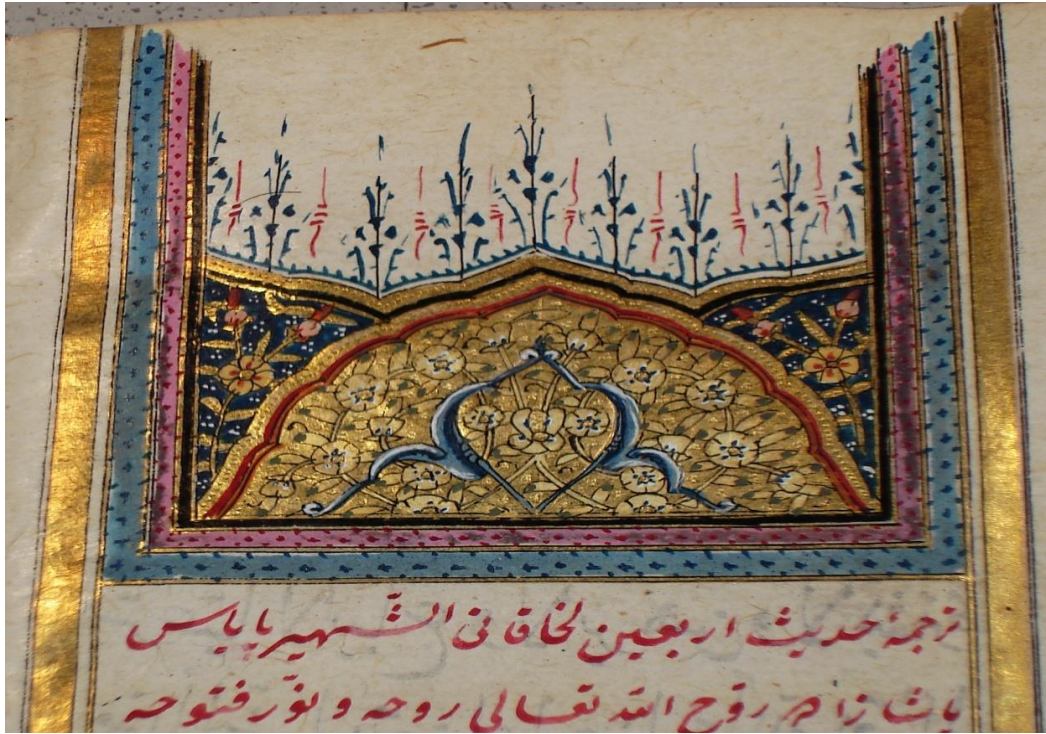 ترجمۀ حدیث اربعین لخاقانی الشّهیر بایاس
پاشا زاده روّح الله تعالی روحه و نوّر فتوحه